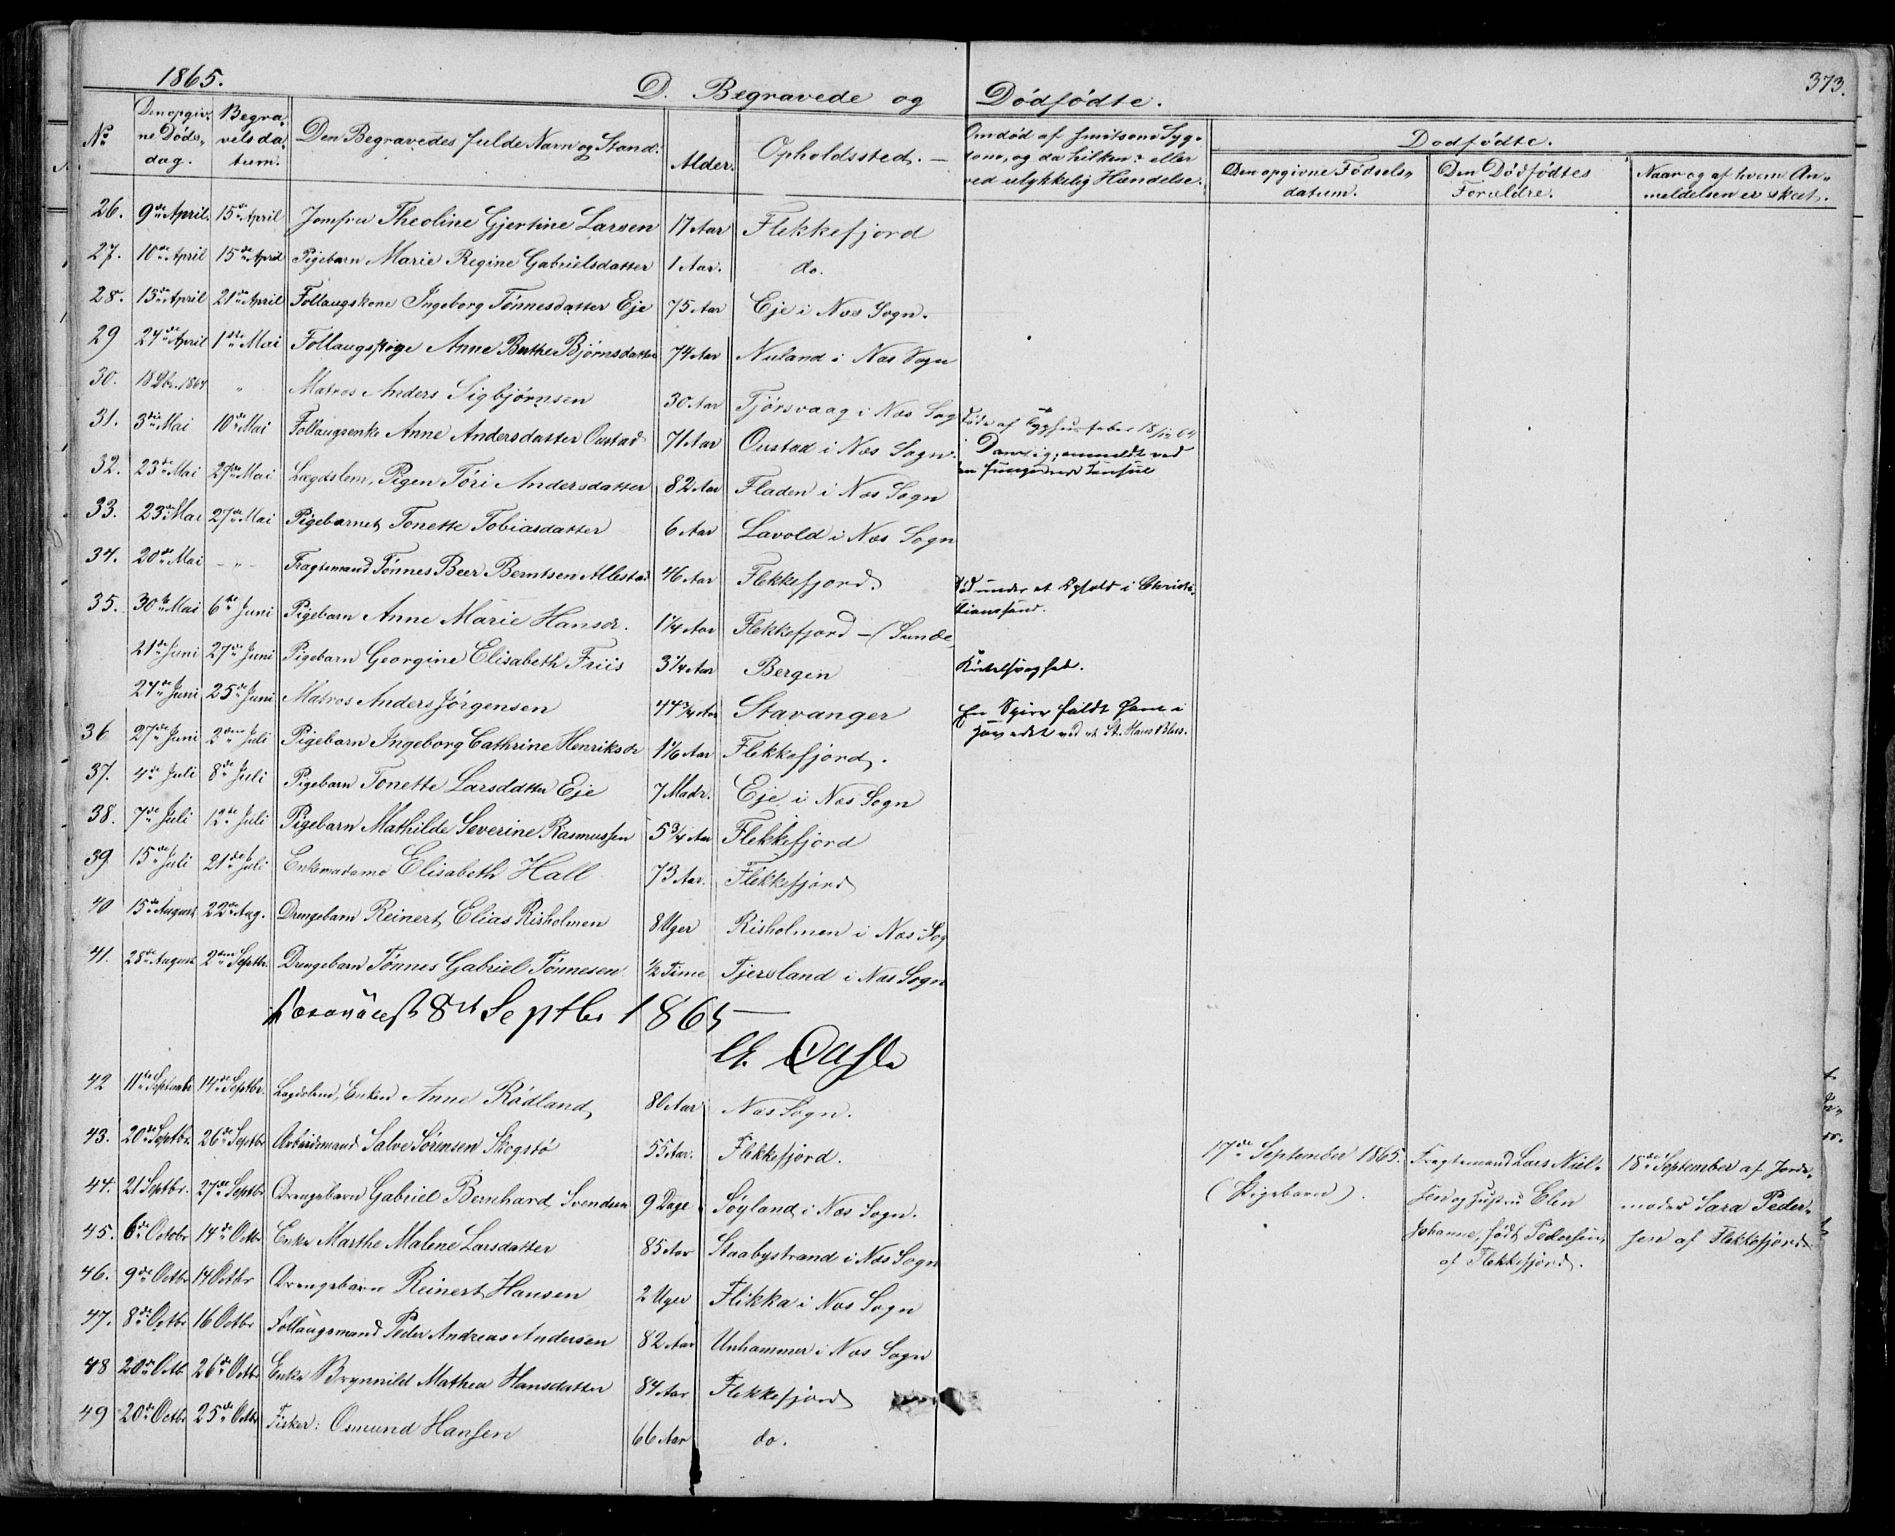 1865.
D. Begravede og Dödfödte.
373.
No
Den opgivne Döds-dag.
Begravelsdatum.
Den Begravedes fulde Navn og Stand.
Alder.
Opholdssted.
Om död af smitsom Sygdom, og da hvilken? eller ved ulykkelig Hændelse.
Dödfödte.
Den opgivne Födsels-datum.
Den Dödfödtes Forældre.
Naar og af hvem Anmeldelsen er skeet.
26. 9de April. 15de April Jomfru Theoline Gjertine Larsen 17 Aar Flekkefjord
27. 10de April 15de April Pigebarn Marie Regine Gabrielsdatter 1 Aar. do.
28. 13de April 21de April Follaugskone Ingeborg Tönnesdatter Eje 75 Aar Eje i Nes Sogn.
29 24de April 1ste Mai Anne Berthe Björnsdatter 74 Aar Nuland i Nes Sogn
30. 18 Dbr. 1864 " Matros Anders Sigbjörnsen 30 Aar Tjörsvaag i Nes Sogn Döde af Typhus feber 18/12 64 i ; anmeldt ved
31. 3die Mai 10de Mai Follaugsenke Anne Andersdatter Oustad 71 Aar Oustad i Nes Sogn.
32. 23de Mai 27de Mai Lægdslem, Pigen Töri Andersdatter 82 Aar Fladen i Nes Sogn
33. 23de Mai 27de Mai Pigebarnet Tonette Tobiasdatter 6 Aar Lavold i Nes Sogn
34. 20de Mai - " - Fragtemand Tönnes Beer Berntsen Allestad 46 Aar Flekkefjord Död under et Ophold i Christiansand.
35. 30te Mai 6te Juni Pigebarn Anne Marie Hansdr. 1 1/4 Aar Flekkefjord - (Sunde
21de Juni 27de Juni Pigebarn Georgine Elisabeth Friis 3 1/4 Aar Bergen Kirtelsvaghed.
24de Juni 25de Juni Matros Anders Jörgensen 44 3/4 Aar Stavanger En Spire faldt ham i Hovedet ved et St. Hans Blus.
36 27de Juni 2den Juli Pigebarn Ingeborg Cathrine Henriksdr 1 1/6 Aar Flekkefjord.
37. 4de Juli 8de Juli Pigebarn Tonette Larsdatter Eje 7 Madr. Eje i Nes Sogn
38. 7de Juli 12te Juli Pigebarn Mathilde Severine Rasmussen 5 3/4 Aar Flekkefjord
39 15de Juli 21de Juli Enkemadame Elisabeth Hall 73 Aar. Flekkefjord
40 15de August 22de Aug. Drengebarn Reinert Elias Risholmen 8 Uger Risholmen i Nes Sog
41. 28de August 2den Septbr. Drengebarn Tönnes Gabriel Tönnesen 1/2 Time Tjersland i Nes Sogn
8de Septbr 1865
42 11te September 14de Septbr. Lægdslem, Enken Anne Rödland 86 Aar Nes Sogn.
43. 20de Septbr. 26de Septbr Arbeidsmand Salve Sörensen Skogstö 55 Aar. Flekkefjord.
17de September 1865. (Pigebarn).
Fragtemand Lars Nielsen og Hustru Elen Johanne, född Pedersen, af Flekkefjord.
18de September af Jordemoder Sara Pedersen af Flekkefjord
44. 21 Septbr. 27de Septbr Drengebarn Gabriel Bernhard Svendsen 9 Dage Söyland i Nes Sogn.
45. 6te Octobr 14de Octbr Enke Marthe Malene Larsdatter 85 Aar Staabystrand i Nes Sogn
46. 9de Octbr 14 Octbr Drengebarn Reinert Hansen 2 Uger Flikka i Nes Sogn
47. 8de Octbr 16 Octbr Follaugsmand Peder Andreas Andersen 82 Aar Unhammer i Nes Sogn
48 20de Octb 26de Octbr Enke Brynnild Mathea Hansdatter 84 Aar Flekkefjord
49 20de Octbr 25de Octbr Fisker: Osmund Hansen 66 Aar do.